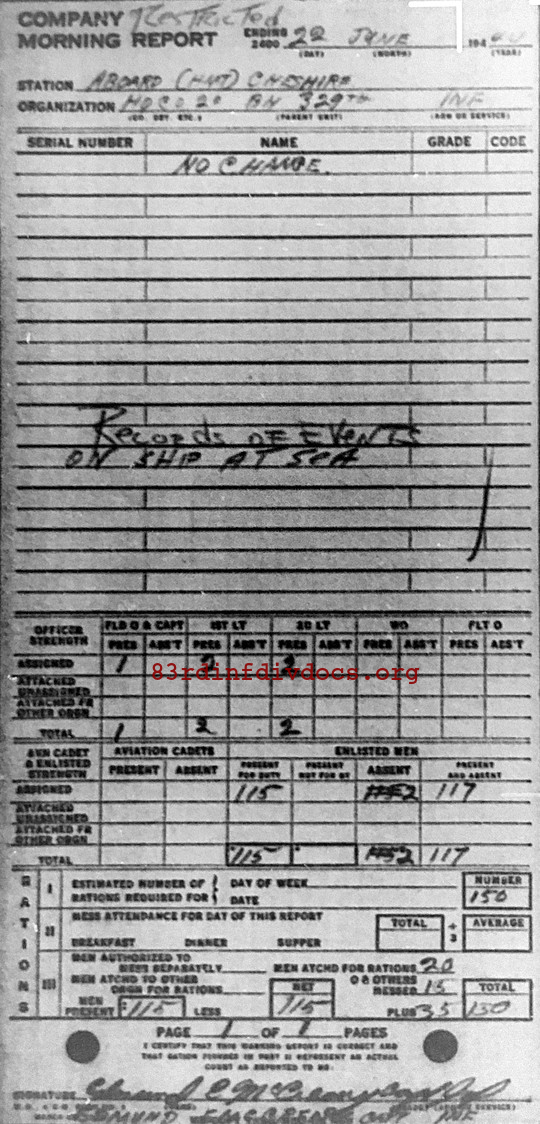 COMPANY Restricted
MORNING REPORT ENDING 2400 22 JUNE 194
(DAY) (MONTH) (YEAR)
STATION ABOARD (HMT) CHESHIRE
ORGANIZATION HQ CO 2D BN 329TH INF
(CO. DET. ETC.) (PARENT UNIT) (ARM OR SERVICE)
SERIAL NUMBER NAME GRADE CODE
NO CHANGE.
Records OF EVENTS
ON SHIP AT SEA
OFFICER STRENGTH FLD O & CAPT 1ST LT 2D LT WO FLT O
PRES ABS'T PRES ABS'T PRES ABS'T PRES ABS'T PRES ABS'T
ASSIGNED 1 2 2
83rdinfdivdocs.org
ATTACHED UNASSIGNED
ATTACHED FR OTHER ORGN
TOTAL 1 2 2
AVN CADET & ENLISTED STRENGTH AVIATION CADETS ENLISTED MEN
PRESENT ABSENT PRESENT FOR DUTY PRESENT NOT FOR DY ABSENT PRESENT AND ABSENT
ASSIGNED 115 2 117
ATTACHED UNASSIGNED
ATTACHED FR OTHER ORGN
TOTAL 115 2 117
RATIONS
I ESTIMATED NUMBER OF RATIONS REQUIRED FOR DAY OF WEEK DATE NUMBER 150
II MESS ATTENDANCE FOR DAY OF THIS REPORT TOTAL ÷ 3 AVERAGE
BREAKFAST DINNER SUPPER
III MEN AUTHORIZED TO MESS SEPARATELY MEN ATCHD FOR RATIONS 20
MEN ATCHD TO OTHER ORGN FOR RATIONS NET O & OTHERS MESSED 15 TOTAL
MEN PRESENT 115 LESS 115 PLUS 35 150
PAGE 1 OF 1 PAGES
I CERTIFY THAT THIS MORNING REPORT IS CORRECT AND
THAT RATION FIGURES IN PART II REPRESENT AN ACTUAL
COUNT AS REPORTED TO ME:
SIGNATURE
EDMUND INF